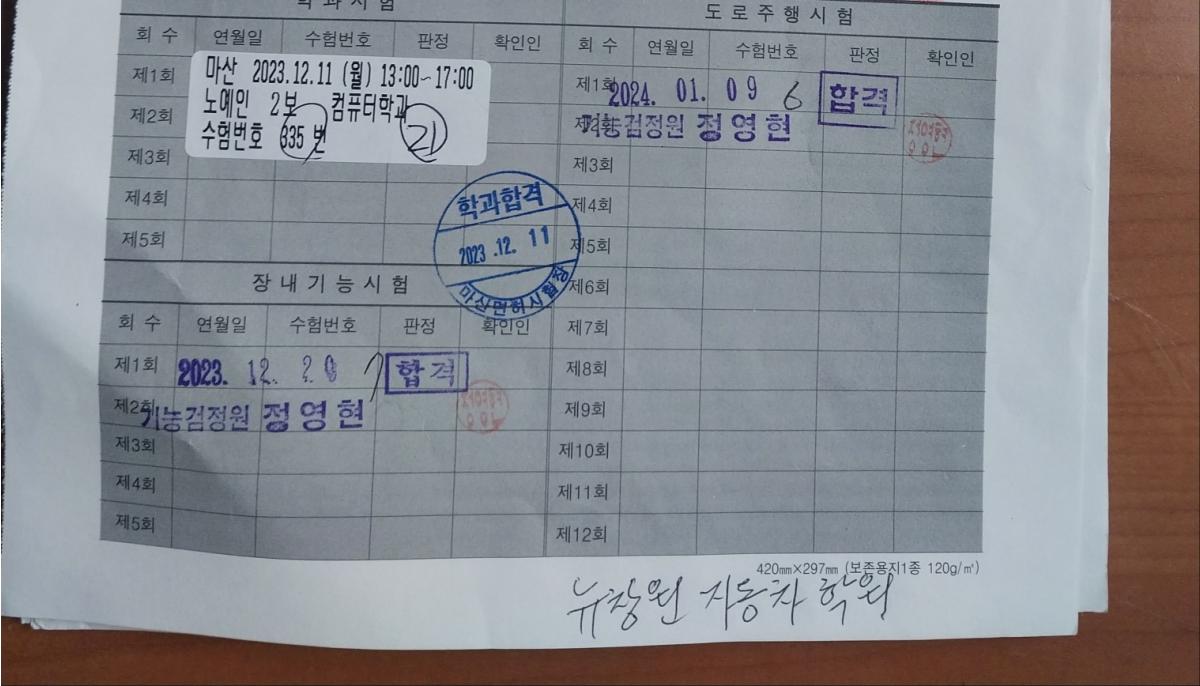 학과시험
회 수 연월일 수험번호 판정 확인인
제1회
마산 2023.12.11 (월) 13:00~17:00
노예인 2보 컴퓨터학과
수험번호 335 번
제2회
제3회
제4회
제5회
학과합격
2023 .12. 11
마산면허시험장
장내기능시험
회 수 연월일 수험번호 판정 확인인
제1회 2023. 12. 20 7 합격
제2회
기능검정원 정영현
제3회
제4회
제5회
도로주행시험
회 수 연월일 수험번호 판정 확인인
제1회 2024. 01. 09 6 합격
기능검정원 정영현
제3회
제4회
제5회
제6회
제7회
제8회
제9회
제10회
제11회
제12회
420㎜×297㎜ (보존용지1종 120g/㎡)
뉴창원 자동차 학원